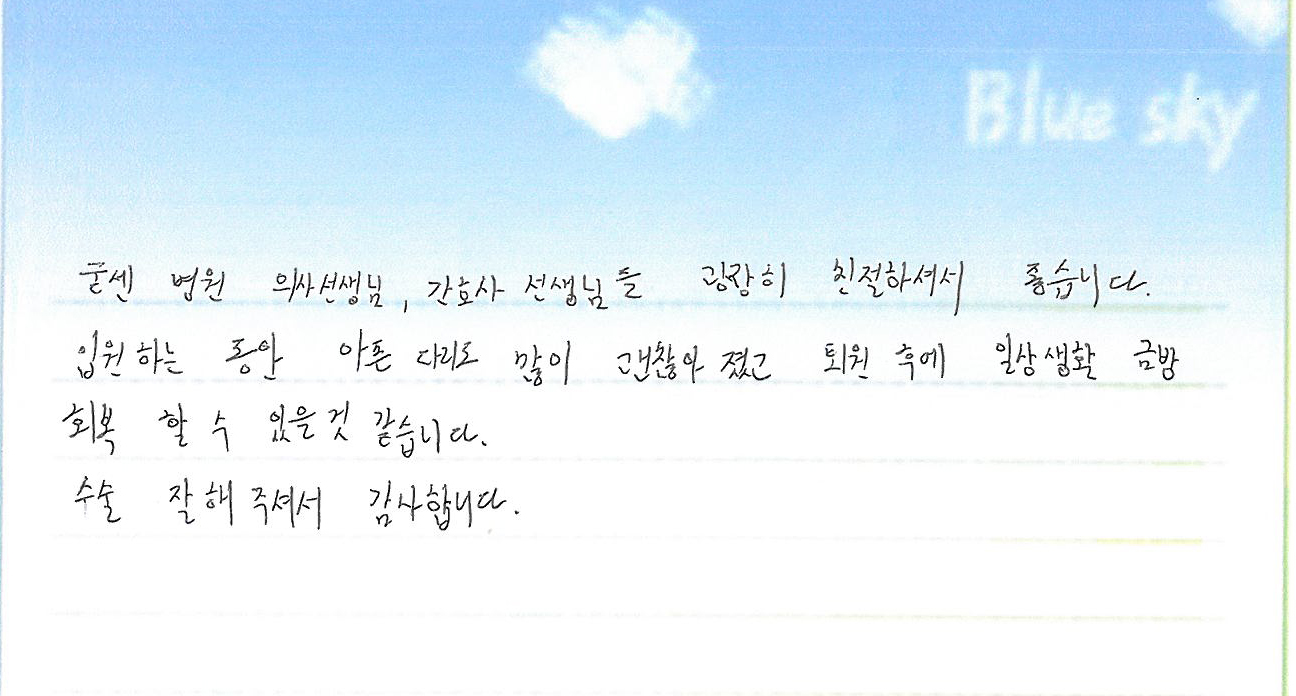 Blue sky
굳센 병원 의사선생님, 간호사 선생님들 굉장히 친절하셔서 좋습니다.
입원하는 동안 아픈 다리도 많이 괜찮아 졌고 퇴원 후에 일상생활 금방
회복 할 수 있을것 같습니다.
수술 잘해주셔서 감사합니다.